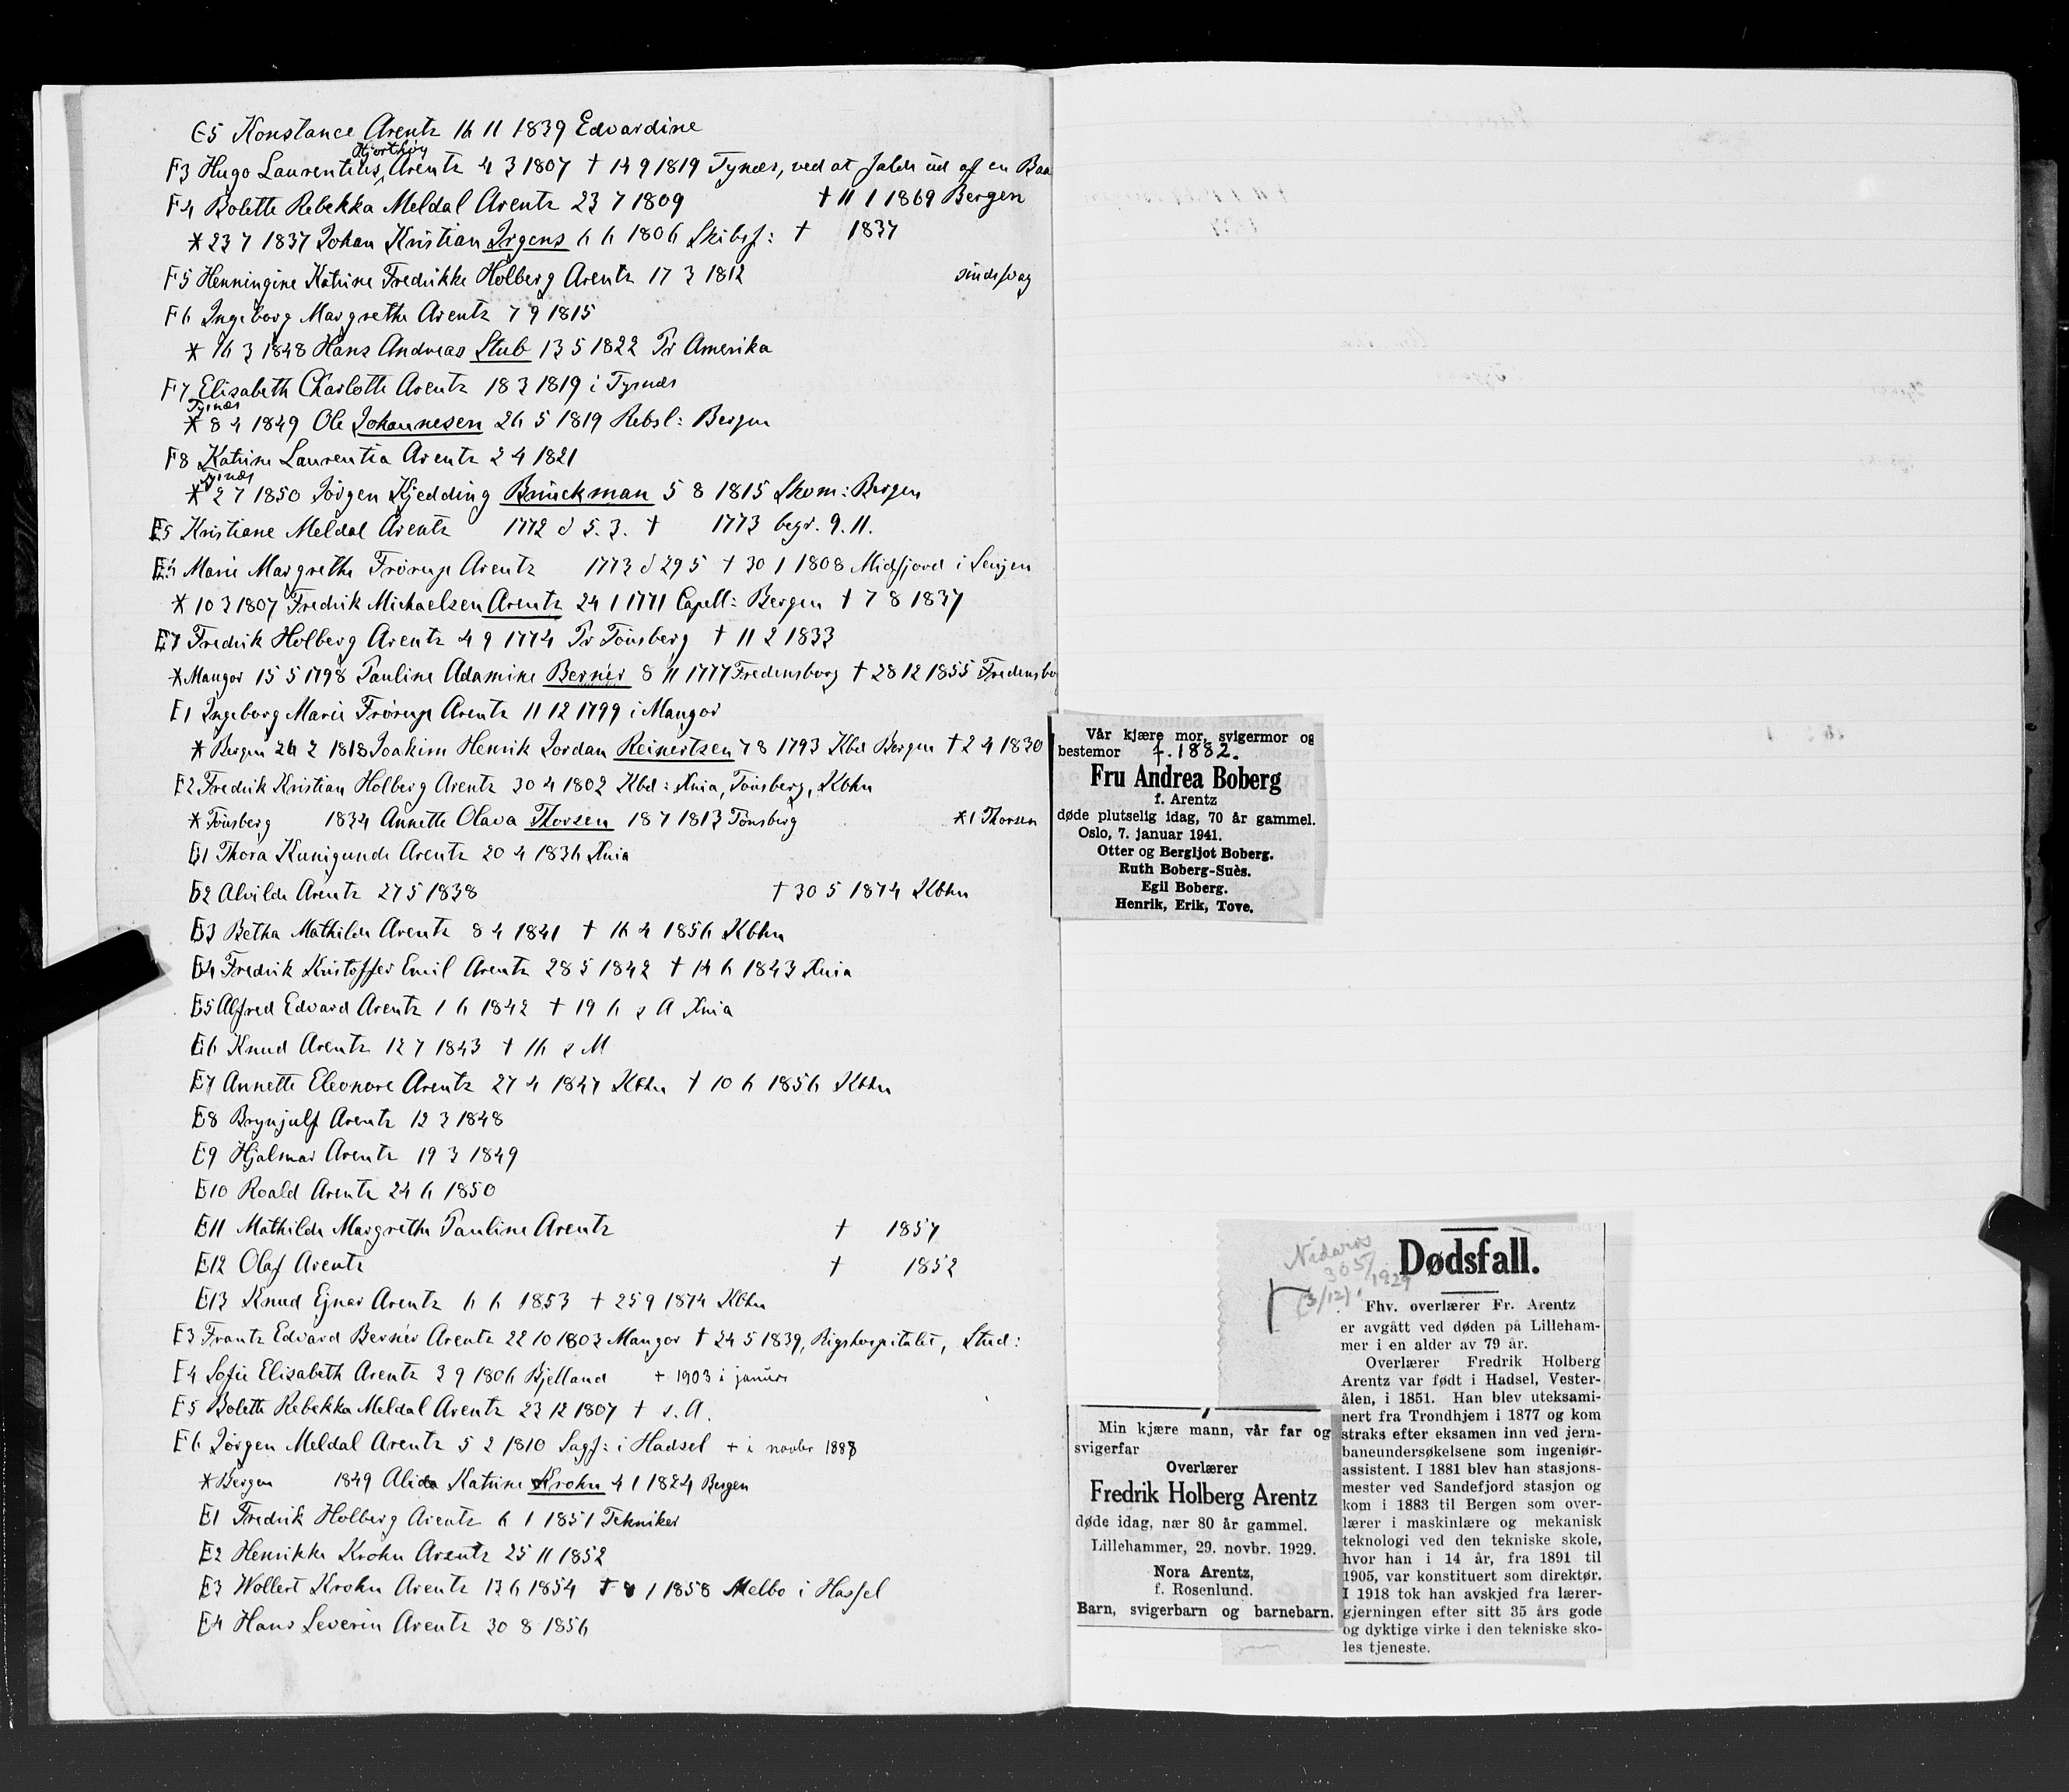 G5 Konstance Arentz 16 11 1839 Edvardine
Hjorthøy
F3 Hugo Laurentius Arentz 4 3 1807 † 14 9 1819 Tysnes, ved at falde ud af en Baa
F4 Bolette Rebekka Meldal Arentz 23 7 1809 † 11 1 1869 Bergen
* 23 7 1837 Johan Kristian Irgens 6 6 1806 Skibsf: † 1837
F5 Henningine Katrine Fredrikke Holberg Arentz 17 3 1812 sindssvag
F6 Ingeborg Margrethe Arentz 7 9 1815
* 16 3 1848 Hans Andreas Stub 13 5 1822 Pr Amerika
F7 Elisabeth Charlotte Arentz 18 3 1819 i Tysnes
Tysnes
* 8 4 1849 Ole Johannesen 26 5 1819 Rebsl: Bergen
F8 Katrine Laurentia Arentz 2 4 1821
Tysnes
* 2 7 1850 Jörgen Kjedding Brückman 5 8 1815 Skom: Bergen
E5 Kristiane Meldal Arentz 1772 d 5. 3. † 1773 begr. 9. 11.
E6 Marie Margrethe Frörup Arentz 1773 d 29 5 † 30 1 1808 Midfjord i Senjen
* 10 3 1807 Fredrik Michaelsen Arentz 24 1 1771 Capell: Bergen † 7 8 1837
E7 Fredrik Holberg Arentz 4 9 1774 Pr Tönsberg † 11 2 1833
* Mangor 15 5 1798 Pauline Adamine Bernér 8 11 1777 Fredensborg † 28 12 1855 Fredensbo
F1 Ingeborg Marie Frörup Arentz 11 12 1799 i Mangor
* Bergen 24 2 1818 Joakim Henrik Jordan Reinertsen 7 8 1793 Kbd Bergen † 2 4 1830
F2 Fredrik Kristian Holberg Arentz 30 4 1802 Kbd: Xnia, Tönsberg, Kbhn
* Tönsberg 1834 Annette Olava Thorsen 18 7 1813 Tönsberg *1 Thorsen
G1 Thora Kunigunde Arentz 20 4 1836 Xnia
G2 Alvilde Arentz 27 5 1838 † 30 5 1874 Kbhn
G3 Betha Mathilde Arentz 8 4 1841 † 16 4 1856 Kbhn
G4 Fredrik Kristoffer Emil Arentz 28 5 1842 † 14 6 1843 Xnia
G5 Alfred Edvard Arentz 1 6 1842 † 19 6 s A Xnia
G6 Knud Arentz 12 7 1843 † 16 s M
G7 Annette Eleonore Arentz 27 4 1847 Kbhn † 10 6 1856 Kbhn
G8 Brynjulf Arentz 12 3 1848
G9 Hjalmar Arentz 19 3 1849
G10 Roald Arentz 24 6 1850
G11 Mathilde Margrethe Pauline Arentz † 1857
G12 Olaf Arentz † 1852
G13 Knud Ejnar Arentz 6 6 1853 † 25 9 1874 Kbhn
F3 Frantz Edvard Bernér Arentz 22 10 1803 Mangor † 24 5 1839, Rigshospitalet, Stud:
F4 Sofie Elisabeth Arentz 3 9 1806 Bjelland + 1903 i januar
F5 Bolette Rebekka Meldal Arentz 23 12 1807 † s. A.
F6 Jörgen Meldal Arentz 5 2 1810 Sagf: i Hadsel + i novbr 1888
* Bergen 1849 Alida Katrine Krohn 4 1 1824 Bergen
G1 Fredrik Holberg Arentz 6 1 1851 Tekniker
G2 Henrikke Krohn Arentz 25 11 1852
G3 Wollert Krohn Arentz 13 6 1854 † 8 1 1858 Melbo i Hassel
G4 Hans Severin Arentz 30 8 1856
Vår kjære mor, svigermor og
bestemor f. 1882.
Fru Andrea Boberg
f. Arentz
døde plutselig idag, 70 år gammel.
Oslo, 7. januar 1941.
Otter og Bergljot Boberg.
Ruth Boberg-Suès.
Egil Boberg.
Henrik, Erik, Tove.
Nidaros
305/1929
(3/12).
Dødsfall.
Fhv. overlærer Fr. Arentz
er avgått ved døden på Lilleham-
mer i en alder av 79 år.
Overlærer Fredrik Holberg
Arentz var født i Hadsel, Vester-
ålen, i 1851. Han blev uteksami-
nert fra Trondhjem i 1877 og kom
straks efter eksamen inn ved jern-
baneundersøkelsene som ingeniør-
assistent. I 1881 blev han stasjons-
mester ved Sandefjord stasjon og
kom i 1883 til Bergen som over-
lærer i maskinlære og mekanisk
teknologi ved den tekniske skole,
hvor han i 14 år, fra 1891 til
1905, var konstituert som direktør.
I 1918 tok han avskjed fra lærer-
gjerningen efter sitt 35 års gode
og dyktige virke i den tekniske sko-
les tjeneste.
Min kjære mann, vår far og
svigerfar
Overlærer
Fredrik Holberg Arentz
døde idag, nær 80 år gammel.
Lillehammer, 29. novbr. 1929.
Nora Arentz,
f. Rosenlund.
Barn, svigerbarn og barnebarn.